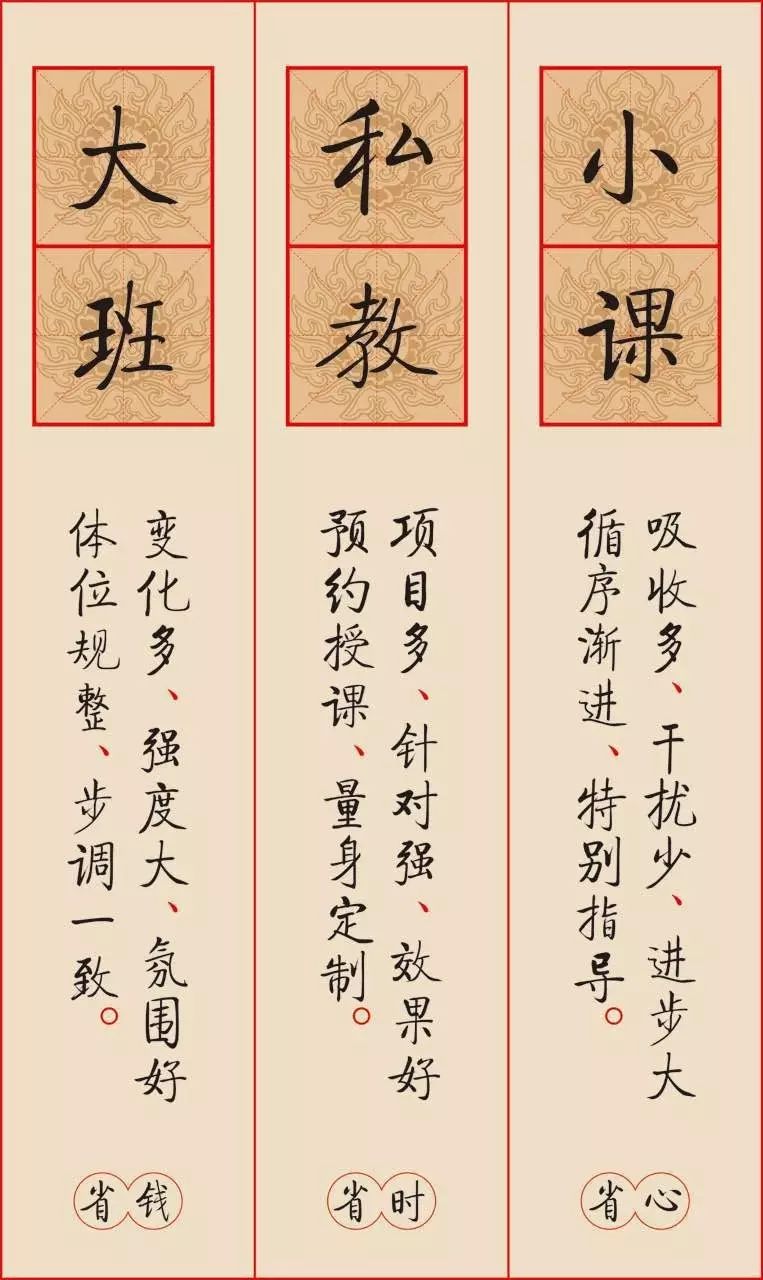 小课
吸收多、干扰少、进步大
循序渐进、特别指导。
省心
私教
项目多、针对强、效果好
预约授课、量身定制。
省时
大班
变化多、强度大、氛围好
体位规整、步调一致。
省钱